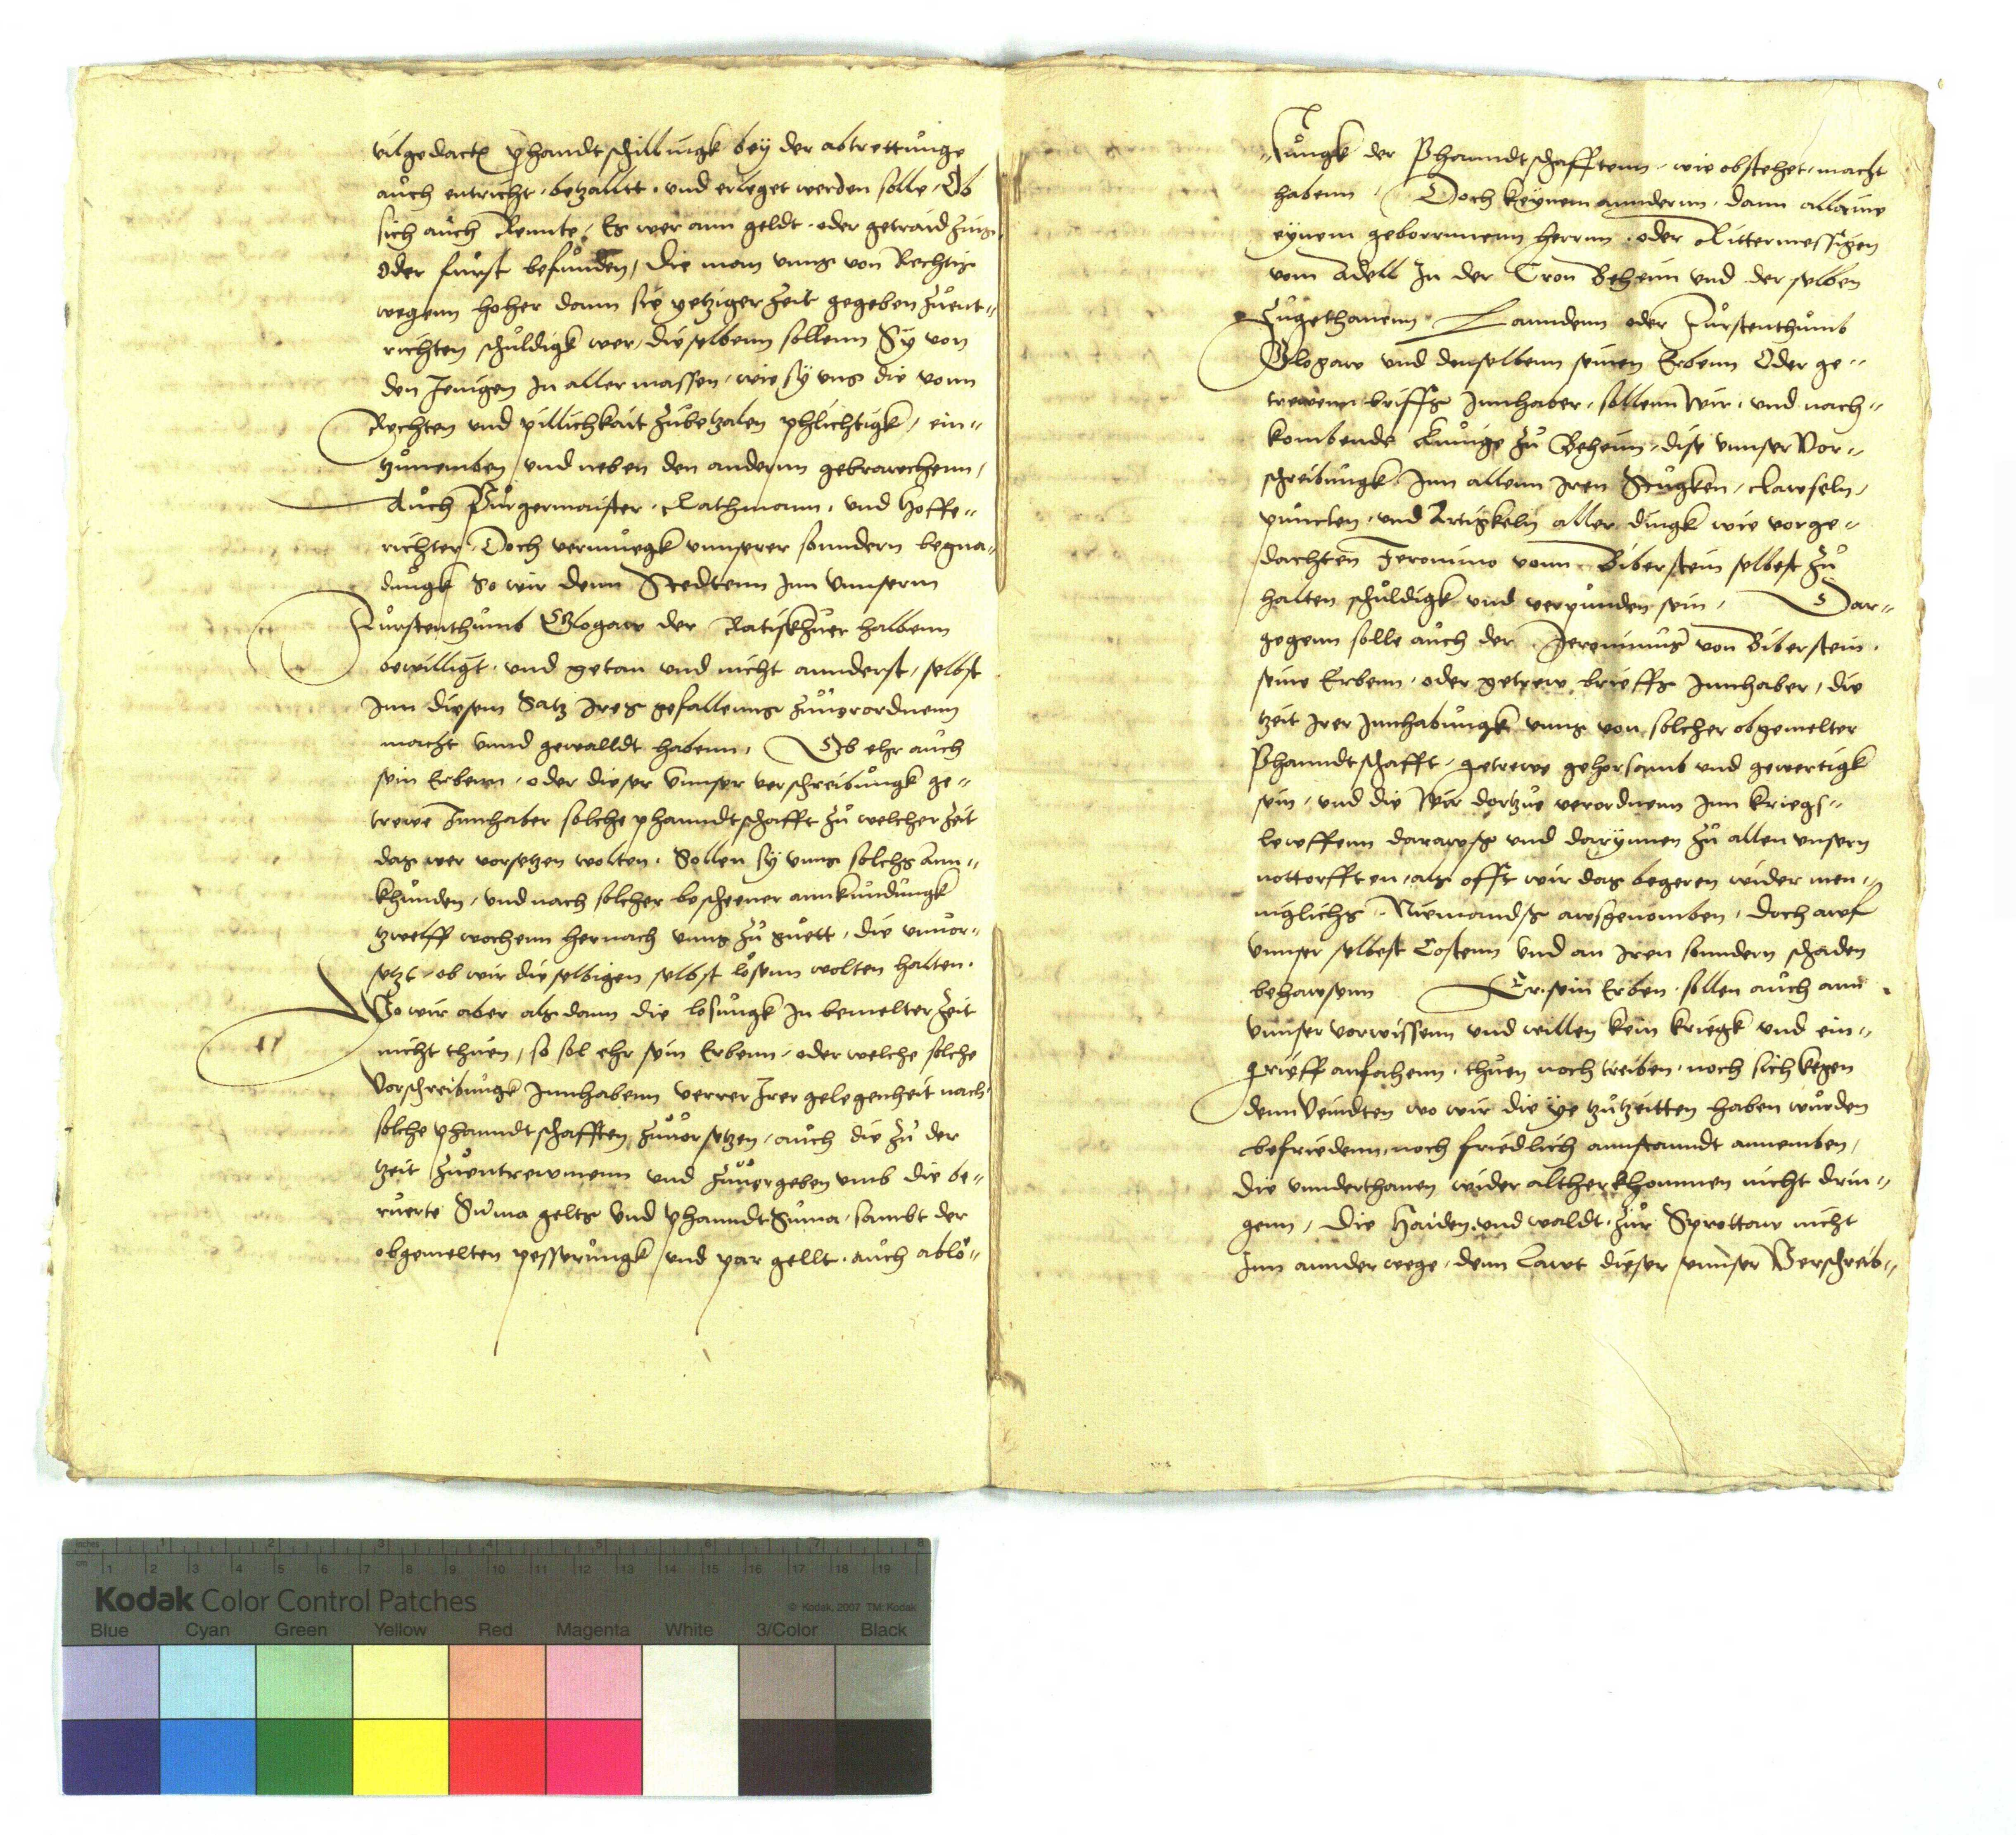 vilgedacte phandtschillingk bey der abtrettunge
auch entricht, betzalltt, und erleget werden solle, Ob
sich auch Rennte, Es wer ann geldt, oder getraid Zins
oder sunst befunden, die man unns von Rechtis
wegenn hoher dann sie yetziger Zeit gegeben Zuent-
richten schuldigk wer, dieselbenn sollenn Sy von
den Jenigen In aller massen, wie sy uns die vonn
Rechten und pillichkait Zubetzalen phlichtigk, ein-
tzunemben und neben den andernn gebrawchenn,
Auch Burgermaister, Rathmann, und Hoffe-
richter, Doch vermuegk unnserer sonndern begna-
dungk So wir denn Stedtenn Inn Unnserm
Furstenthumb Glogaw der halbenn
bewilligt, und getan und nicht annderst, selbst
Inn diesem Satz Ires gefallenns Zuverordnenn
macht unnd gewalldt habenn, Ob ehr auch
sein Erbenn, oder dieser Unnser verschreibungk ge-
trewe Innhaber solche phanndtschafft Zu welcher Zeit
das wer vorsetzen wolten, Sollen sy unns solchs ann-
khunden, und nach solcher beschener annkundungk
tzwelff wochenn hernach unns Zu guett, die unvor-
setzt, ob wir dieselbigen selbst lösenn wolten halten.
Wo wir aber als dann die losungk In bemelter Zeit
nicht thuen, so sol ehr sein Erbenn, oder welche solche
Vorschreibunge Innhabenn verrer Irer gelegenheit nach
solche phanndtschafften, Zuvorsetzen, auch die Zu der
tzeit Zuentrewmenn und Zuvergeben umb die be-
ruerte Suma gelts und phanndtSuma, sambt der
obgemelten pesserungk und par gellt, auch ablö-
sungk der Phanndtschafftenn, wie obstehet, macht
habenn, Doch keynem annderenn, dann allaine
eynem geborrnnenn Herrnn, oder Rittermessigen
vom Adell In der Cron Behem und derselben
Zugethanenn Lanndenn oder Furstenthumb
Glogaw und denselbenn seinen Erbenn Oder ge-
trewenn briffs Innhaber, sollenn Wir, und nach-
kombende Kunige Zu Behem, dise unnser Vor-
schreibungk Inn allenn Iren Stugken, clawseln,
puncten, und Artigkeln aller dingk wie vorge-
dachten Jeronimo vonn Biberstein selbest Zu
halten schuldigk und verpunden sein, Dar-
gegenn solle auch der Jeronimus von Biberstein,
seine Erbenn, oder getrew brieffs Innhaber, die
tzeit Irer Innhabungk unns von solcher obgemelter
Phanndtschafft, getrewe gehorsamb und gewertigk
sein, und die Wir dartzue verordnenn Inn kriegs-
lewffenn darawss und darynnen Zu allen unsern
notturfften, als offt wir das begeren wider men-
niglichs, Niemandss awsgenomben, doch awf
unnser selbest Costenn und an Iren sonndern schaden
behawsenn Er sein Erben, sollen auch ann
unnser vorwissenn und willen kein kriegk und ein-
grieff anfahenn, thuen noch treiben, noch sich kegen
denn Veindten wo wir die ye tzutzeitten haben wurden
befriedenn, noch friedlich annstanndt annemben,
die unnderthanen wider altherkhommen nicht drin-
genn, die Haiden und waldt, Zur Sprottaw nicht
Inn annder wege, denn lawt dieser unnser Verschreib-
Kodak Color Control Patches
© Kodak, 2007 TM: Kodak
inches 1 2 3 4 5 6 7 8
cm 1 2 3 4 5 6 7 8 9 10 11 12 13 14 15 16 17 18 19
Blue Cyan Green Yellow Red Magenta White 3/Color Black